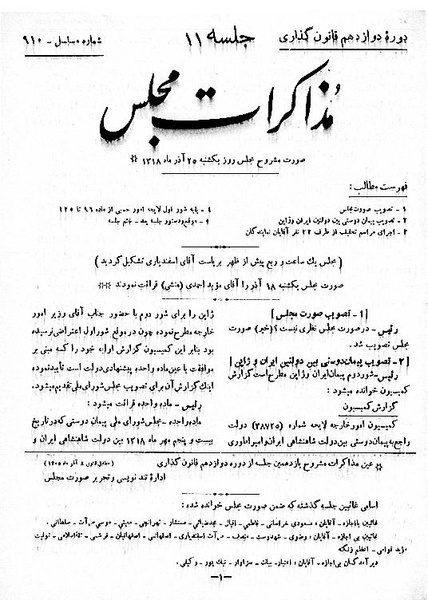 دورهٔ دوازدهم قانون گذاری
جلسه ۱۱
شماره مسلسل - ۹۱۰
مذاکرات مجلس
صورت مشروح مجلس روز یکشنبه ۲۵ آذر ماه ۱۳۱۸ ※
فهرست مطالب:
۱ - تصویب صورت مجلس
۲ - تصویب پیمان دوستی بین دولتین ایران و ژاپن
۳ - اجرای مراسم تحلیف از طرف ۲۲ نفر آقایان نمایندگان
۴ - بقیه شور اول لایحه امور حسبی از ماده ۹۶ تا ۱۲۵
۵ - موقع و دستور جلسه بعد - ختم جلسه
(مجلس یک ساعت و ربع پیش از ظهر بریاست آقای اسفندیاری تشکیل گردید)
صورت مجلس یکشنبه ۱۸ آذر را آقای مؤید احمدی (منشی) قرائت نمودند ※※
[۱ - تصویب صورت مجلس]
رئیس - در صورت مجلس نظری نیست؟ (خیر) صورت
مجلس تصویب شد.
[۲ - تصویب پیمان دوستی بین دولتین ایران و ژاپن]
رئیس - شور دوم پیمان ایران و ژاپن مطرح است گزارش
کمیسیون خوانده میشود:
گزارش کمیسیون
کمیسیون امور خارجه لایحه شماره (۳۸۷۲۵) دولت
راجع به پیمان دوستی بین دولت شاهنشاهی ایران و امپراطوری
ژاپن را برای شور دوم با حضور جناب آقای وزیر امور
خارجه مطرح نموده چون در موقع شور اول اعتراضی نرسیده
بود بنابر این کمیسیون گزارش اولیه خود را که مبنی بر
موافقت با عین ماده واحده پیشنهادی دولت است تأیید نموده
اینک گزارش آن برای تصویب مجلس شورای ملی تقدیم میشود.
رئیس - ماده واحده قرائت میشود:
ماده واحده - مجلس شورای ملی پیمان دوستی که در تاریخ
بیست و پنجم مهر ماه ۱۳۱۸ بین دولت شاهنشاهی ایران و
※ عین مذاکرات مشروح یازدهمین جلسه از دوره دوازدهم قانون گذاری
اداره تند نویسی و تحریر صورت مجلس
اسامی غائبین جلسه گذشته که ضمن صورت مجلس خوانده شده:
غائبین با اجازه - آقایان: مسعودی خراسانی - فاطمی - اقبال - مستشار - تهرانچی - معینی - موسی مرآت - سلطانی.
- ۱ -